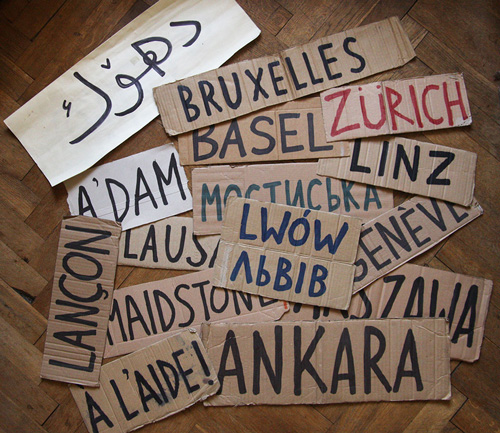 دهۆك
BRUXELLES
ZÜRICH
BASEL
LINZ
A'DAM
МОСТИСЬКА
LWÓW
ЛЬВІВ
GENÈVE
LAUSA
LANÇON
MAIDSTON
SZAWA
A L'AIDE!
ANKARA